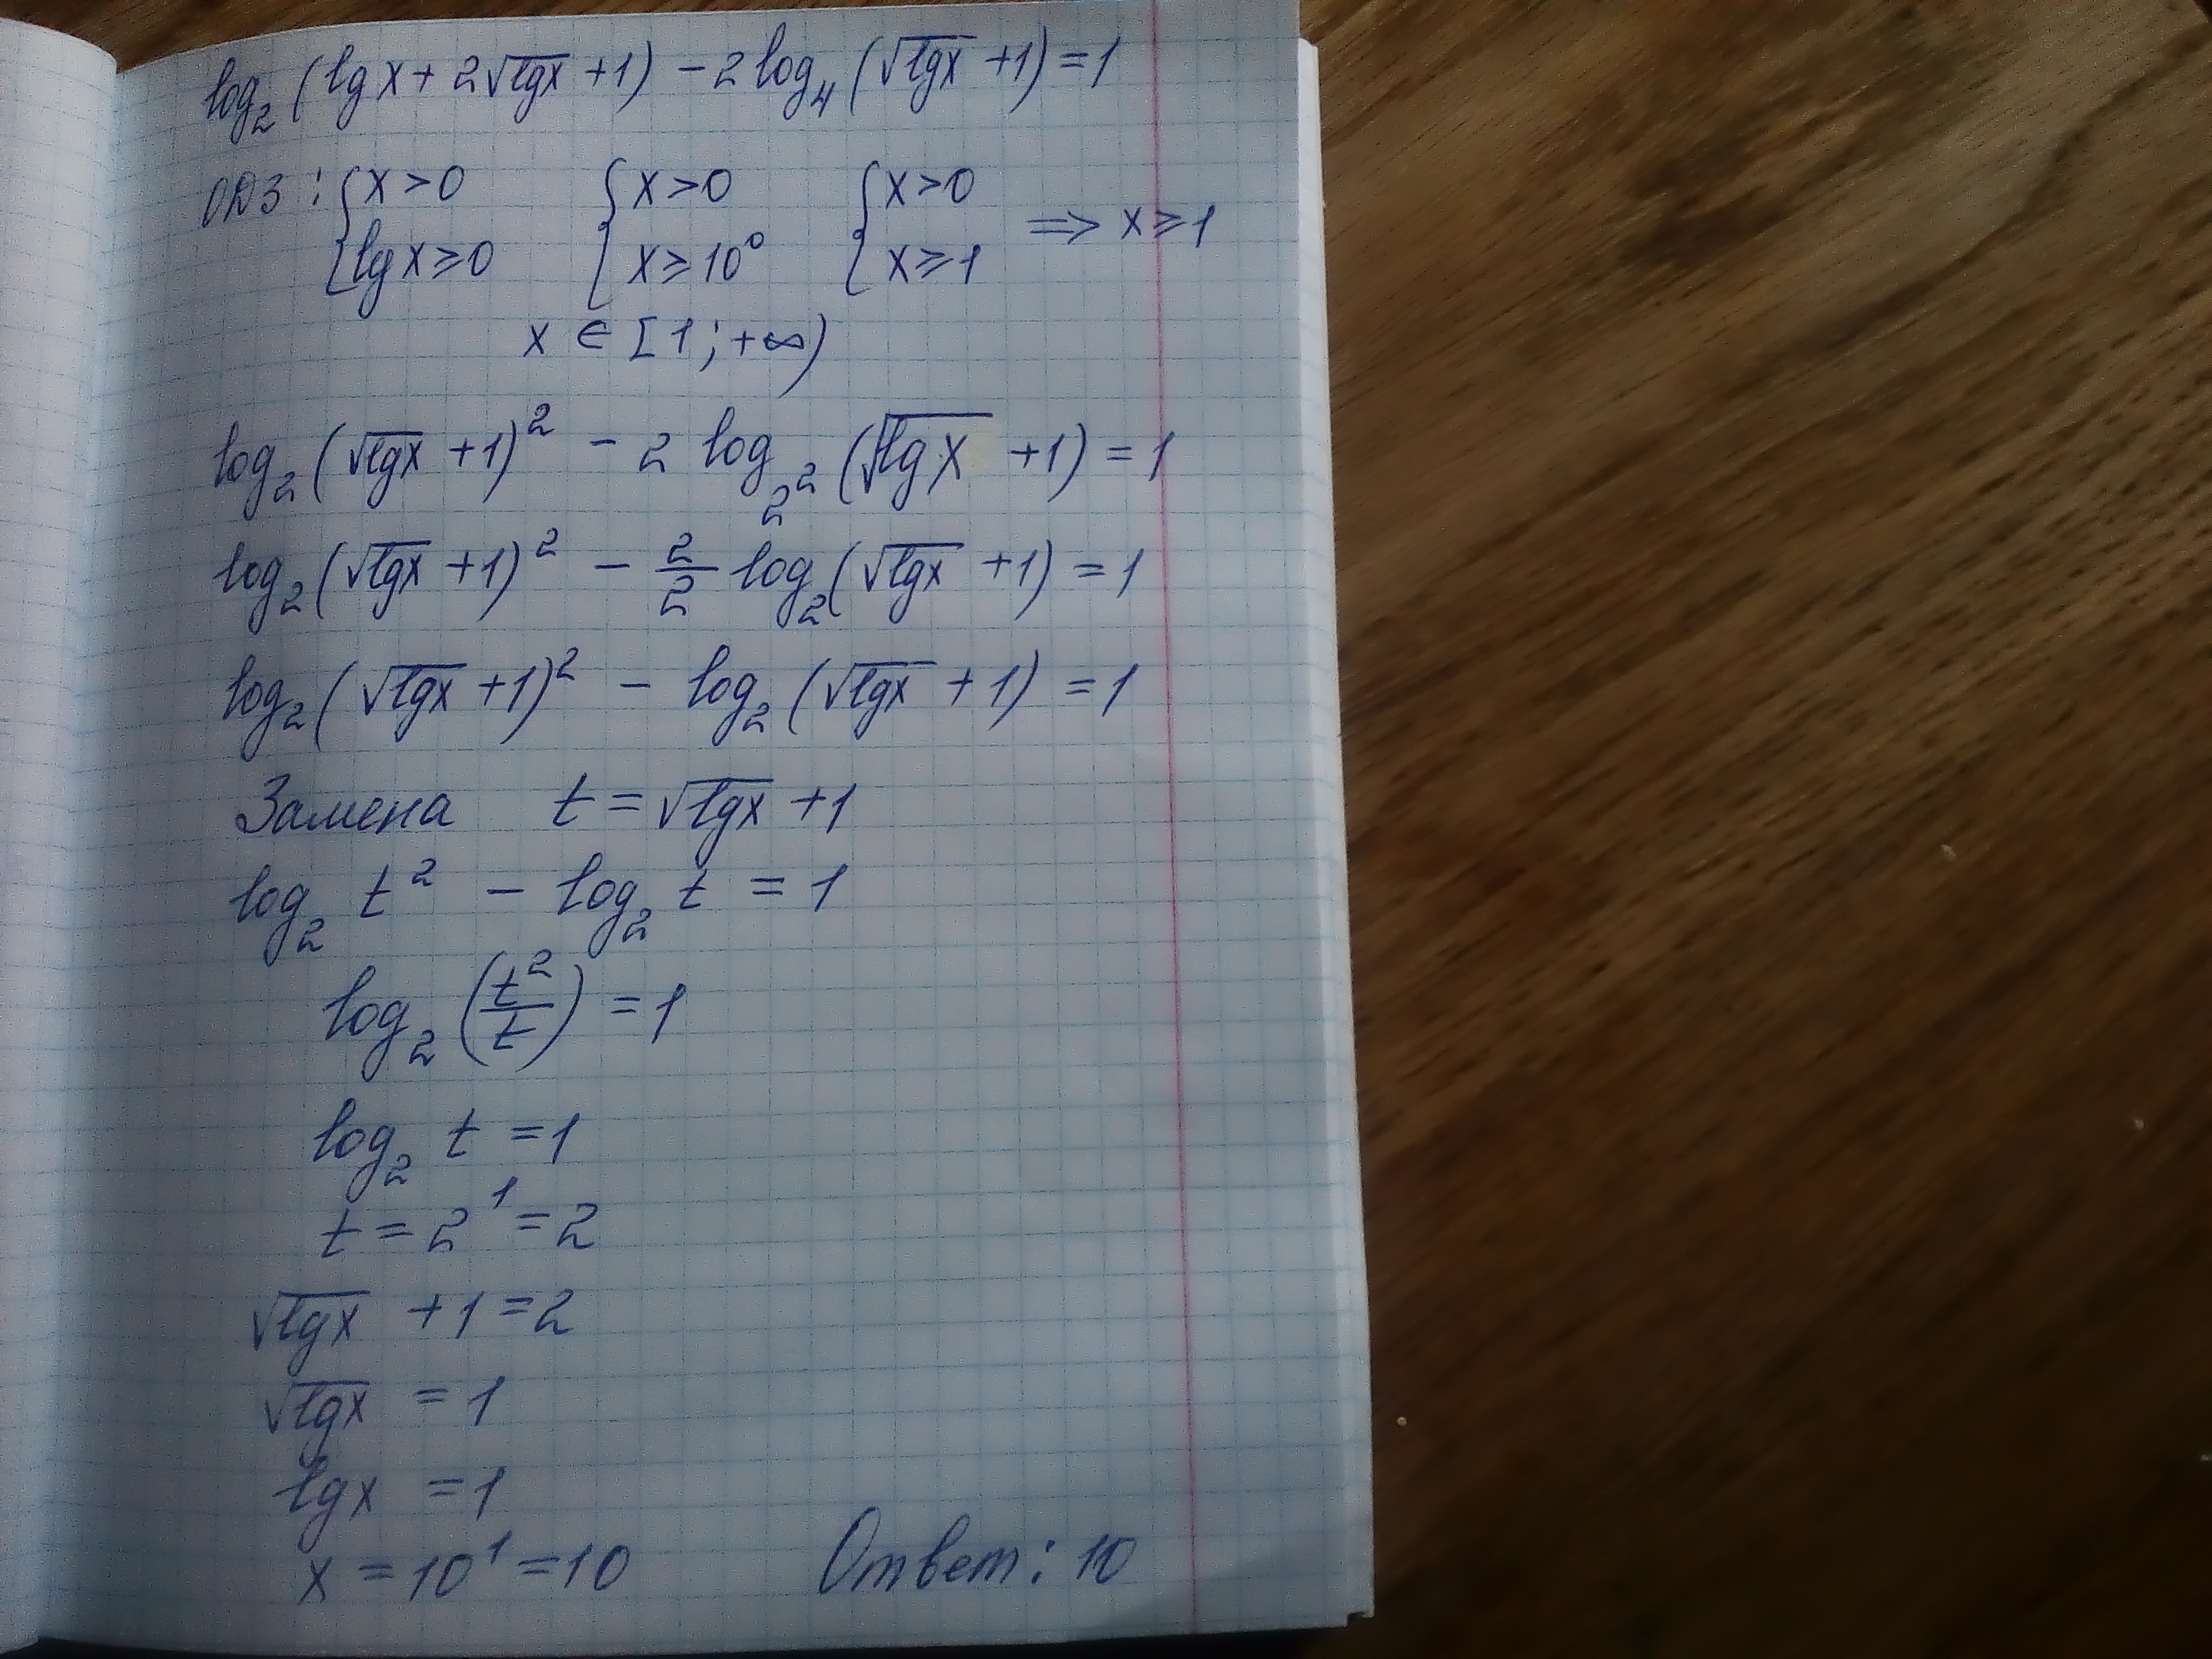 log₂(lgx + 2√lgx + 1) − 2log₄(√lgx + 1) = 1
ОДЗ: {x > 0 {x > 0 {x > 0
{lgx ≥ 0 {x ≥ 10⁰ {x ≥ 1 ⇒ x ≥ 1
x ∈ [1; +∞)
log₂(√lgx + 1)² − 2 log_2²(√lgx + 1) = 1
log₂(√lgx + 1)² − 2/2 log₂(√lgx + 1) = 1
log₂(√lgx + 1)² − log₂(√lgx + 1) = 1
Замена t = √lgx + 1
log₂ t² − log₂ t = 1
log₂(t²/t) = 1
log₂ t = 1
t = 2¹ = 2
√lgx + 1 = 2
√lgx = 1
lgx = 1
x = 10¹ = 10 Ответ: 10